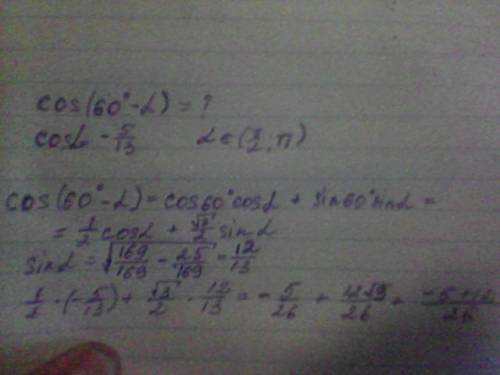 cos(60°-α) = ?
cosα - 5/13 α ∈ (π/2; π)
cos(60°-α) = cos60°cosα + sin60°sinα =
= 1/2 cosα + √3/2 sinα
sinα = √(169/169 - 25/169) = 12/13
1/2 · (-5/13) + √3/2 · 12/13 = - 5/26 + 12√3/26 =